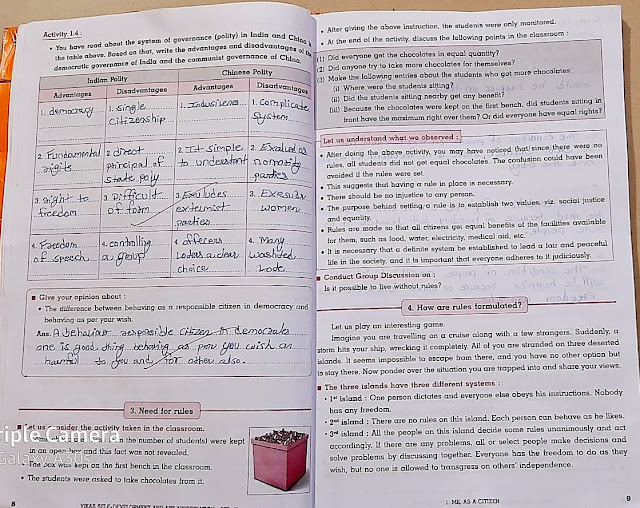 Activity 1.4 :
• You have read about the system of governance (polity) in India and China in
the table above. Based on that, write the advantages and disadvantages of the
democratic governance of India and the communist governance of China.
Indian Polity Chinese Polity
Advantages Disadvantages Advantages Disadvantages
1. democracy 1. single citizenship 1. 1. Complicate system
2. Fundamental rights 2. direct principal of state poly 2. It simple to understand 2. parties
3. right to freedom 3. Difficult of form 3. Exludes extremist parties 3. women
4. Freedom of speech 4. controlling a group 4. offecers a clear choice 4. Many
■ Give your opinion about :
• The difference between behaving as a responsible citizen in democracy and
behaving as per your wish.
Ans. A behaviour responsible citizen in democratic
one is good thing behaving as per you wish an
harmful to you and for other also.
3. Need for rules
■ Let us consider the activity taken in the classroom.
than the number of students) were kept
in an open box and this fact was not revealed.
• The box was kept on the first bench in the classroom.
• The students were asked to take chocolates from it.
riple Camera
Galaxy A30s
8
• After giving the above instruction, the students were only monitored.
• At the end of the activity, discuss the following points in the classroom :
(1) Did everyone get the chocolates in equal quantity?
(2) Did anyone try to take more chocolates for themselves?
(3) Make the following entries about the students who got more chocolates:
(i) Where were the students sitting?
(ii) Did the students sitting nearby get any benefit?
(iii) Because the chocolates were kept on the first bench, did students sitting in
front have the maximum right over them? Or did everyone have equal rights?
Let us understand what we observed :
• After doing the above activity, you may have noticed that since there were no
rules, all students did not get equal chocolates. The confusion could have been
avoided if the rules were set.
• This suggests that having a rule in place is necessary.
• There should be no injustice to any person.
• The purpose behind setting a rule is to establish two values, viz. social justice
and equality.
• Rules are made so that all citizens get equal benefits of the facilities available
for them, such as food, water, electricity, medical aid, etc.
• It is necessary that a definite system be established to lead a fair and peaceful
life in the society, and it is important that everyone adheres to it judiciously.
■ Conduct Group Discussion on :
Is it possible to live without rules?
4. How are rules formulated?
Let us play an interesting game.
Imagine you are travelling on a cruise along with a few strangers. Suddenly, a
storm hits your ship, wrecking it completely. All of you are stranded on three deserted
islands. It seems impossible to escape from there, and you have no other option but
to stay there. Now ponder over the situation you are trapped into and share your views.
■ The three islands have three different systems :
• 1st island : One person dictates and everyone else obeys his instructions. Nobody
has any freedom.
• 2nd island : There are no rules on this island. Each person can behave as he likes.
• 3rd island : All the people on this island decide some rules unanimously and act
accordingly. If there are any problems, all or select people make decisions and
solve problems by discussing together. Everyone has the freedom to do as they
wish, but no one is allowed to transgress on others' independence.
1. ME, AS A CITIZEN
9